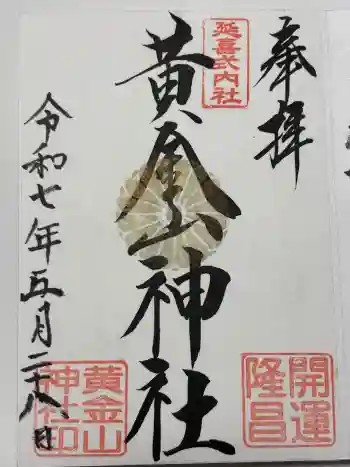 奉拝
延喜式内社
黄金山神社
開運
隆昌
令和七年五月二十八日
黄金山
神社印